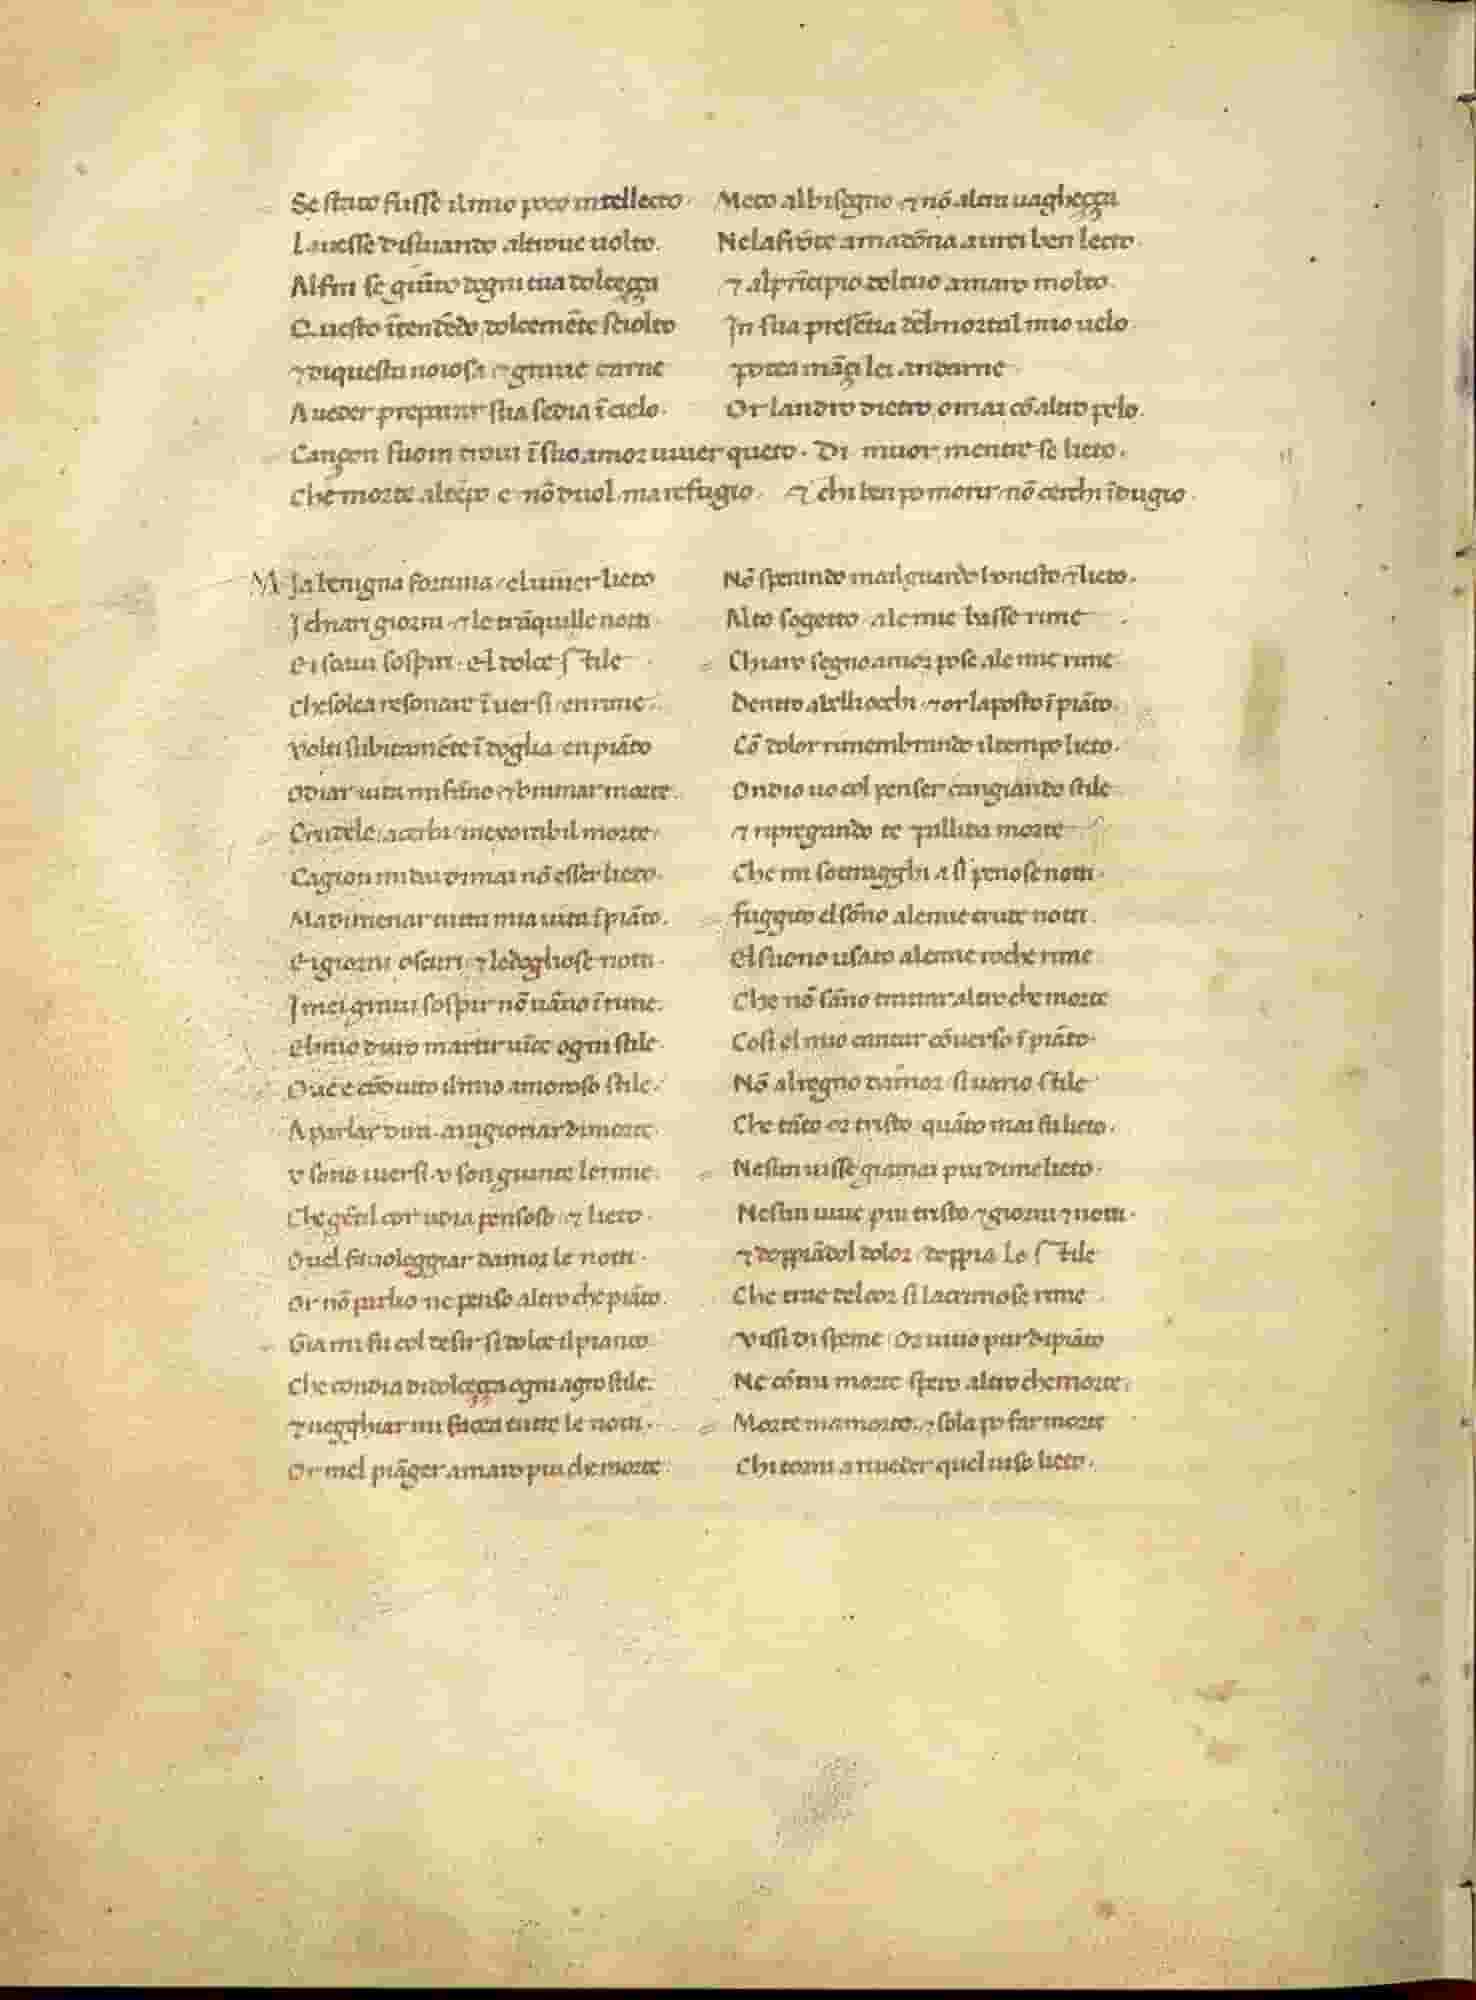 Se stato fusse il mio poco intellecto. Meco al bisogno ⁊ nõ altra vagheçça
L auesse disuiando altroue uolto. Ne la frõte a madõna aurei ben lecto.
Al fin se giũto dogni tua dolceçça ⁊ al prĩcipio del tuo amaro molto.
Questo ĩtendẽdo, dolcemẽte sciolto In sua presẽtia del mortal mio uelo.
⁊ di questa noiosa ⁊ graue carne potea inãçi lei andarne
A ueder preparar sua sedia ĩ cielo. Or landro dietro omai cõ altro pelo.
Cançon suom troui ĩ suo amor uiuer queto. Di muor mentre se lieto.
Che morte al tẽpo e nõ duol, ma refugio. ⁊ chi ben po morir, nõ cerchi ĩdugio.
M Ia benigna fortuna, el uiuer lieto Nõ sperando mai l guardo honesto ⁊ lieto.
I chiari giorni ⁊ le trãquille notti Alto sogetto ale mie basse rime
E i soaui sospiri, el dolce stile Chiaro segno amor pose ale mie rime
Che solea resonare ĩ uersi en rime. Dentro a belli occhi, ⁊ or la posto ĩ piãto.
Volti subitamẽte ĩ doglia en piãto Cõ dolor rimembrando il tempo lieto.
Odiar uita mi fãno ⁊ bramar morte. Ondio uo col penser cangiando stile
Crudele, acerba, inexorabil morte, ⁊ ripregando te pallida morte
Cagion mi dai di mai nõ esser lieto. Che mi sottragghi a sí penose notti.
Ma di menar tutta mia uita ĩ piãto. fuggito el sõno ale mie crude notti
E i giorni oscuri, ⁊ le dogliose notti. El suono usato ale mie roche rime
I mei graui sospir nõ uãno ĩ rime. Che nõ sãno trattar altro che morte
El mio duro martir uĩce ogni stile. Cosi el mio cantar cõuerso ĩ piãto.
Oue e cõdutto il mio amoroso stile. Nõ a l regno damor si uario stile
A parlar dira, a ragionar di morte. Che tãto or tristo quãto mai fu lieto.
V sono i uersi, u son giunte le rime. Nesun uisse giamai piu di me lieto.
Che gẽtil cor udia pensoso ⁊ lieto. Nesun uiue piu tristo ⁊ giorni ⁊ notti.
Ouel fauoleggiar damor le notti. ⁊ doppiãdol dolor, doppia lo stile
Or nõ parlo ne penso altro che piãto. Che trae del cor si lacrimose rime
Gia mi fu col desir si dolce il pianto. Vissi di speme, or uiuo pur di piãto
Che condia di dolceçça ogni agro stile. Ne cõtra morte spero altro che morte.
⁊ uegghiar mi facea tutte le notti. Morte ma morto, ⁊ sola po far morte
Or mel piãger amaro piu che morte. Chi torni a riueder quel uiso lieto.